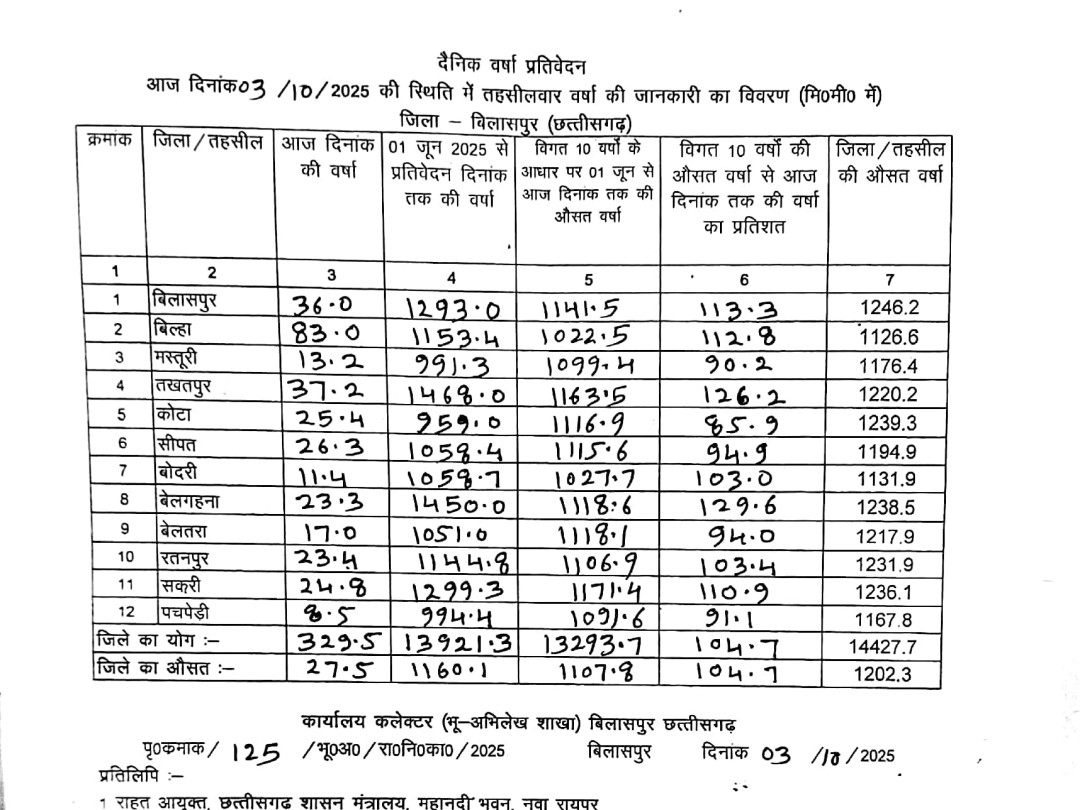 दैनिक वर्षा प्रतिवेदन
आज दिनांक03 /10/2025 की स्थिति में तहसीलवार वर्षा की जानकारी का विवरण (मि0मी0 में)
जिला – बिलासपुर (छत्तीसगढ़)
क्रमांक जिला/तहसील आज दिनांक की वर्षा 01 जून 2025 से प्रतिवेदन दिनांक तक की वर्षा विगत 10 वर्षो के आधार पर 01 जून से आज दिनांक तक की औसत वर्षा विगत 10 वर्षों की औसत वर्षा से आज दिनांक तक की वर्षा का प्रतिशत जिला/तहसील की औसत वर्षा
1 2 3 4 5 6 7
1 बिलासपुर 36.0 1293.0 1141.5 113.3 1246.2
2 बिल्हा 83.0 1153.4 1022.5 112.8 1126.6
3 मस्तूरी 13.2 991.3 1099.4 90.2 1176.4
4 तखतपुर 37.2 1468.0 1163.5 126.2 1220.2
5 कोटा 25.4 959.0 1116.9 85.9 1239.3
6 सीपत 26.3 1058.4 1115.6 94.9 1194.9
7 बोदरी 11.4 1058.7 1027.7 103.0 1131.9
8 बेलगहना 23.3 1450.0 1118.6 129.6 1238.5
9 बेलतरा 17.0 1051.0 1118.1 94.0 1217.9
10 रतनपुर 23.4 1144.8 1106.9 103.4 1231.9
11 सकरी 24.8 1299.3 1171.4 110.9 1236.1
12 पचपेड़ी 8.5 994.4 1091.6 91.1 1167.8
जिले का योग :– 329.5 13921.3 13293.7 104.7 14427.7
जिले का औसत :– 27.5 1160.1 1107.8 104.7 1202.3
कार्यालय कलेक्टर (भू–अभिलेख शाखा) बिलासपुर छत्तीसगढ़
पृ0कमाक/ 125 /भू0अ0/रा0नि0का0/2025 बिलासपुर दिनांक 03 /10/2025
प्रतिलिपि :–
1 राहत आयुक्त, छत्तीसगढ शासन मंत्रालय, महानदी भवन, नवा रायपुर